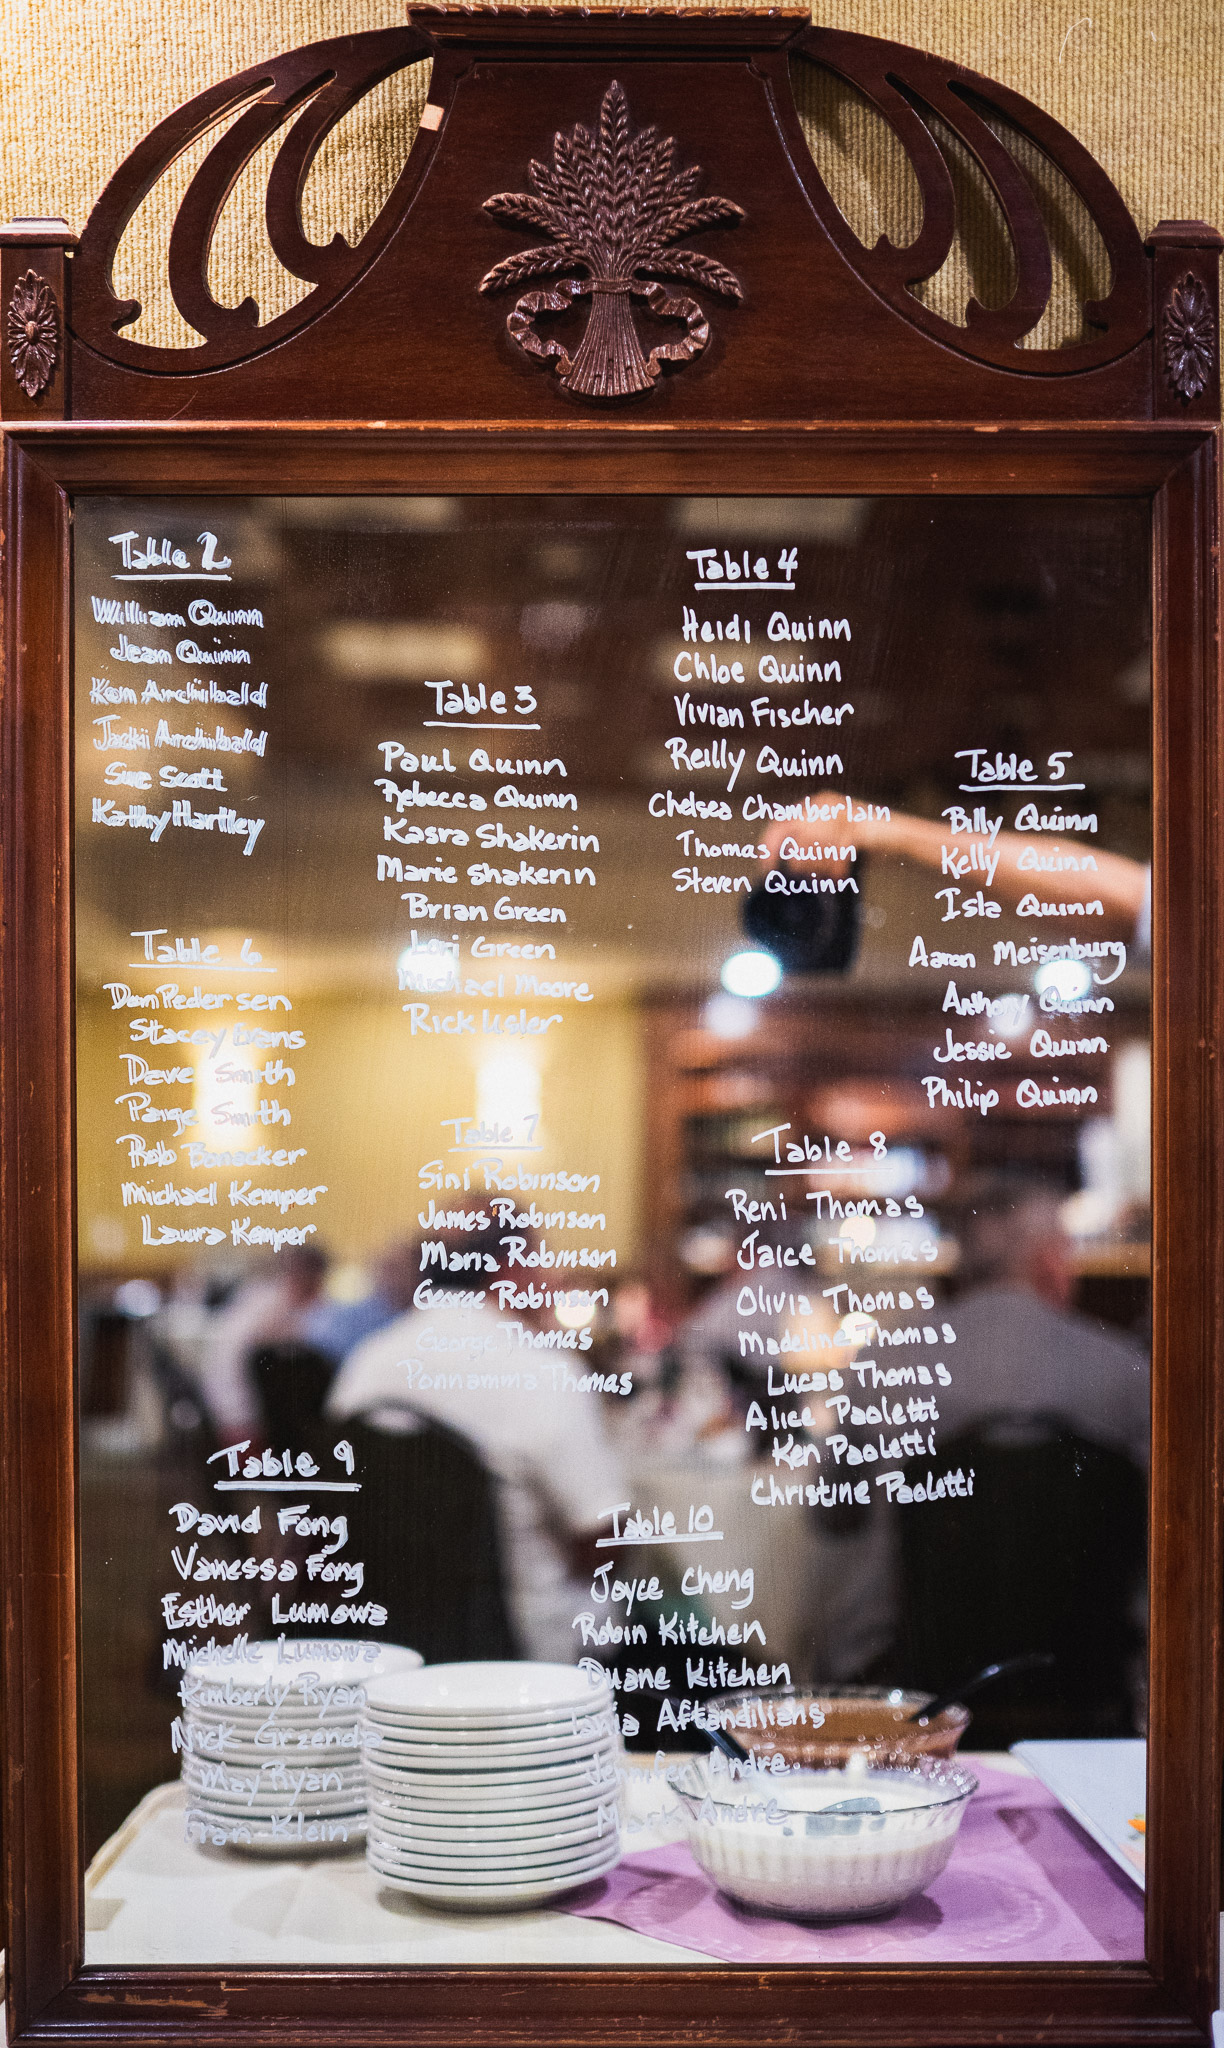 Table 2
William Quinn
Jean Quinn
Ken Archibald
Jacki Archibald
Sue Scott
Kathy Hartley
Table 3
Paul Quinn
Rebecca Quinn
Kasra Shakerin
Marie Shakerin
Brian Green
Lori Green
Michael Moore
Rick Usler
Table 4
Heidi Quinn
Chloe Quinn
Vivian Fischer
Reilly Quinn
Chelsea Chamberlain
Thomas Quinn
Steven Quinn
Table 5
Billy Quinn
Kelly Quinn
Isla Quinn
Aaron Meisenburg
Anthony Quinn
Jessie Quinn
Philip Quinn
Table 6
Dan Pedersen
Stacey Evans
Dave Smith
Paige Smith
Rob Banacker
Michael Kemper
Laura Kemper
Table 7
Sini Robinson
James Robinson
Maria Robinson
George Robinson
George Thomas
Ponnamma Thomas
Table 8
Reni Thomas
Jaice Thomas
Olivia Thomas
Madeline Thomas
Lucas Thomas
Alice Paoletti
Ken Paoletti
Christine Paoletti
Table 9
David Fong
Vanessa Fong
Esther Lumowa
Michelle Lumowa
Kimberly Ryan
Nick Grzenda
May Ryan
Fran Klein
Table 10
Joyce Cheng
Robin Kitchen
Duane Kitchen
Aftandilians
Jennifer Andre
Mark Andre